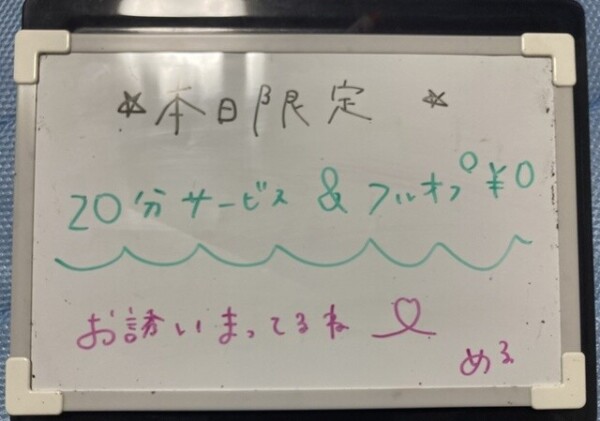 ☆本日限定 ☆
20分サービス & フルオプ ¥0
お誘いまってるね ♡
める